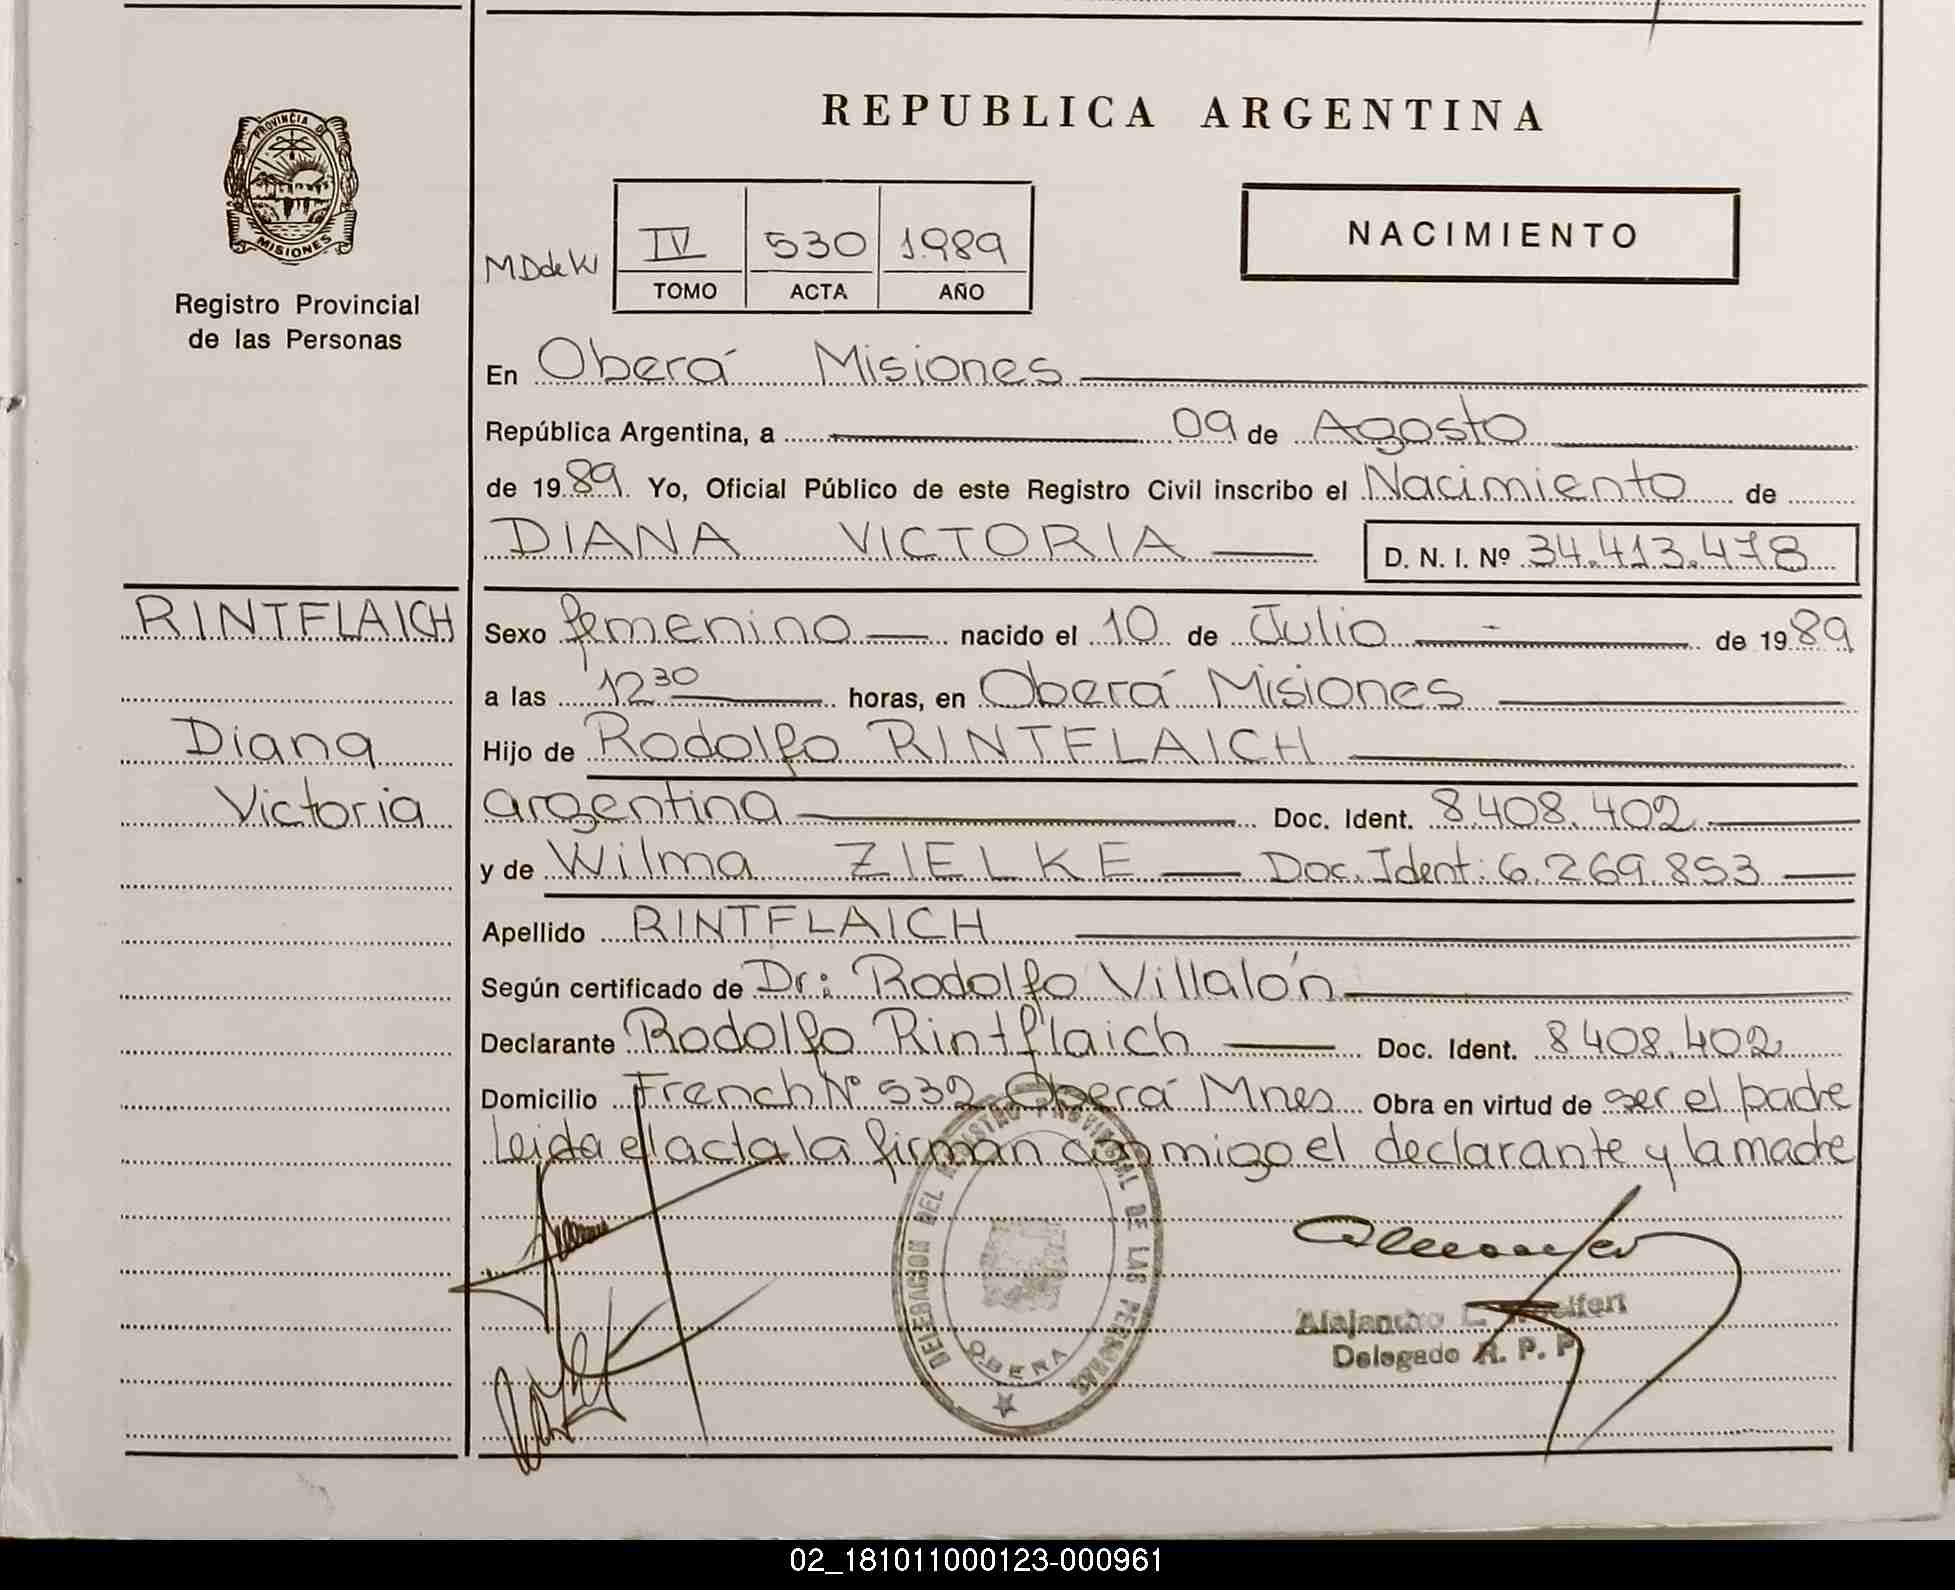 REPUBLICA ARGENTINA
PROVINCIA D
MISIONES
Registro Provincial
de las Personas
MDdeK
IV 530 1.989
TOMO ACTA AÑO
NACIMIENTO
En Oberá Misiones
República Argentina, a 09 de Agosto
de 1989. Yo, Oficial Público de este Registro Civil inscribo el Nacimiento de
DIANA VICTORIA D. N. I. Nº 34.413.478
RINTFLAICH
Diana
Victoria
Sexo femenino nacido el 10 de Julio de 1989
a las 12 30 horas, en Oberá Misiones
Hijo de Rodolfo RINTFLAICH
argentina Doc. Ident. 8.408.402
y de Wilma ZIELKE Doc. Ident: 6.269.853
Apellido RINTFLAICH
Según certificado de Dr: Rodolfo Villalón
Declarante Rodolfo Rintflaich Doc. Ident. 8.408.402
Domicilio French Nº 532 Oberá Mnes Obra en virtud de ser el padre
Leida el acta la firman conmigo el declarante y la madre
DELEGACION DEL REGISTRO PROVINCIAL DE LAS PERSONAS
OBERA
Alejandro L.
Delegado R. P. P.
02_181011000123-000961